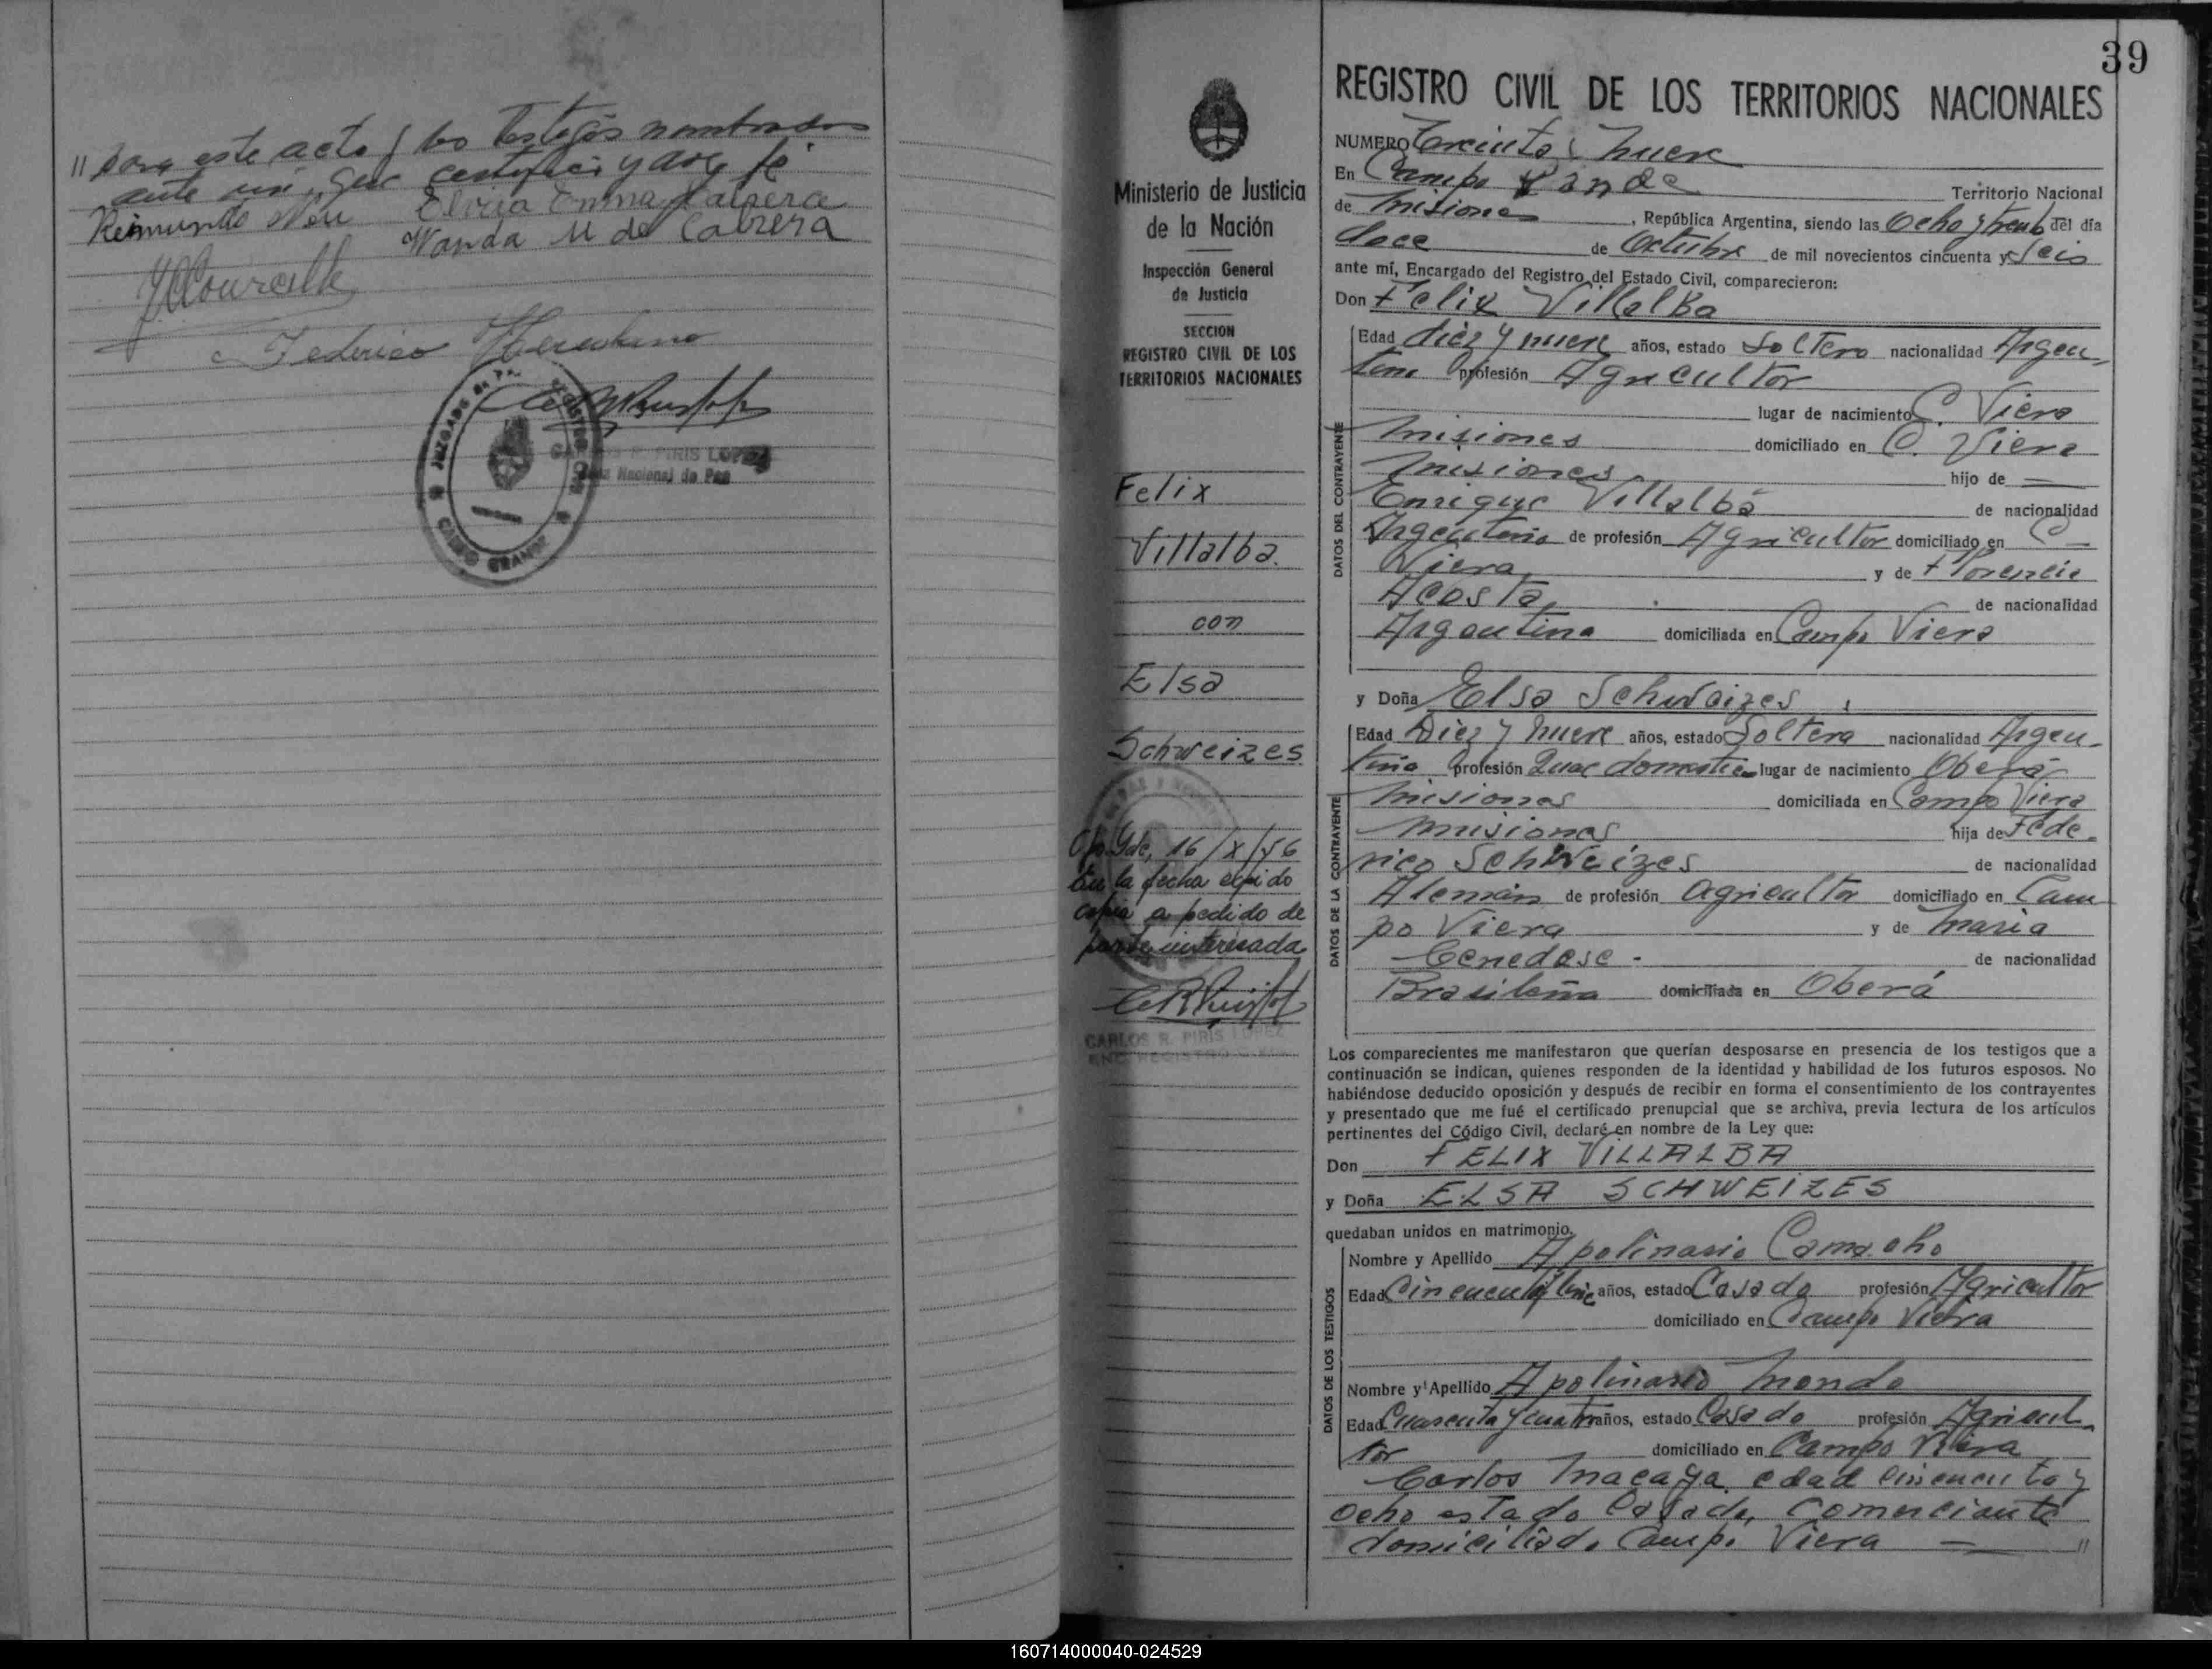 " para este acto y los testigos nombrados
ante mi, que certifico y doy fé
Reimundo Neu Elvira Emma Cabrera
Wanda M de Cabrera
Federico
JUZGADO DE PAZ
CAMPO GRANDE
CARLOS R. PIRIS LOPEZ
Juez Nacional de Paz
39
Ministerio de Justicia
de la Nación
Inspección General
de Justicia
SECCION
REGISTRO CIVIL DE LOS
TERRITORIOS NACIONALES
Felix
Villalba.
con
Elsa
Schweizes
Cpo Gde, 16/X/56
En la fecha expido
copia a pedido de
parte interesada
CARLOS R. PIRIS LOPEZ
ENC. REGISTRO CIVIL
REGISTRO CIVIL DE LOS TERRITORIOS NACIONALES
NUMERO Treinta y nueve
En Campo Grande Territorio Nacional
de Misiones, República Argentina, siendo las Ocho y treinta del día
doce de Octubre de mil novecientos cincuenta y Seis
ante mí, Encargado del Registro del Estado Civil, comparecieron:
Don Felix Villalba
DATOS DEL CONTRAYENTE
Edad diez y nueve años, estado Soltero nacionalidad Argen-
tina profesión Agricultor
lugar de nacimiento C. Viera
Misiones domiciliado en C. Viera
Misiones hijo de —
Enrique Villalba de nacionalidad
Argentino de profesión Agricultor domiciliado en C—
Viera y de Florencia
Acosta, de nacionalidad
Argentina domiciliada en Campo Viera
y Doña Elsa Schweizes
DATOS DE LA CONTRAYENTE
Edad Diez y nueve años, estado Soltera nacionalidad Argen-
tina profesión Quac domestic lugar de nacimiento Oberá
Misiones domiciliada en Campo Viera
Misiones hija de Fede-
rico Schweizes de nacionalidad
Alemán de profesión agricultor domiciliado en Cam
po Viera y de Maria
Cenedese - de nacionalidad
Brasileña domiciliada en Oberá
Los comparecientes me manifestaron que querían desposarse en presencia de los testigos que a
continuación se indican, quienes responden de la identidad y habilidad de los futuros esposos. No
habiéndose deducido oposición y después de recibir en forma el consentimiento de los contrayentes
y presentado que me fué el certificado prenupcial que se archiva, previa lectura de los artículos
pertinentes del Código Civil, declaré en nombre de la Ley que:
Don FELIX VILLALBA
y Doña ELSA SCHWEIZES
quedaban unidos en matrimonio.
DATOS DE LOS TESTIGOS
Nombre y Apellido Apolinario Camacho
Edad Cincuenta y años, estado Casado profesión Agricultor
domiciliado en Campo Viera
Nombre y Apellido Apolinario Mondo
Edad Cuarenta y cuatro años, estado Casado profesión Agricul-
tor domiciliado en Campo Viera
Carlos Macaya edad cincuenta y
ocho estado Casado, Comerciante
domiciliado Campo Viera — "
160714000040-024529